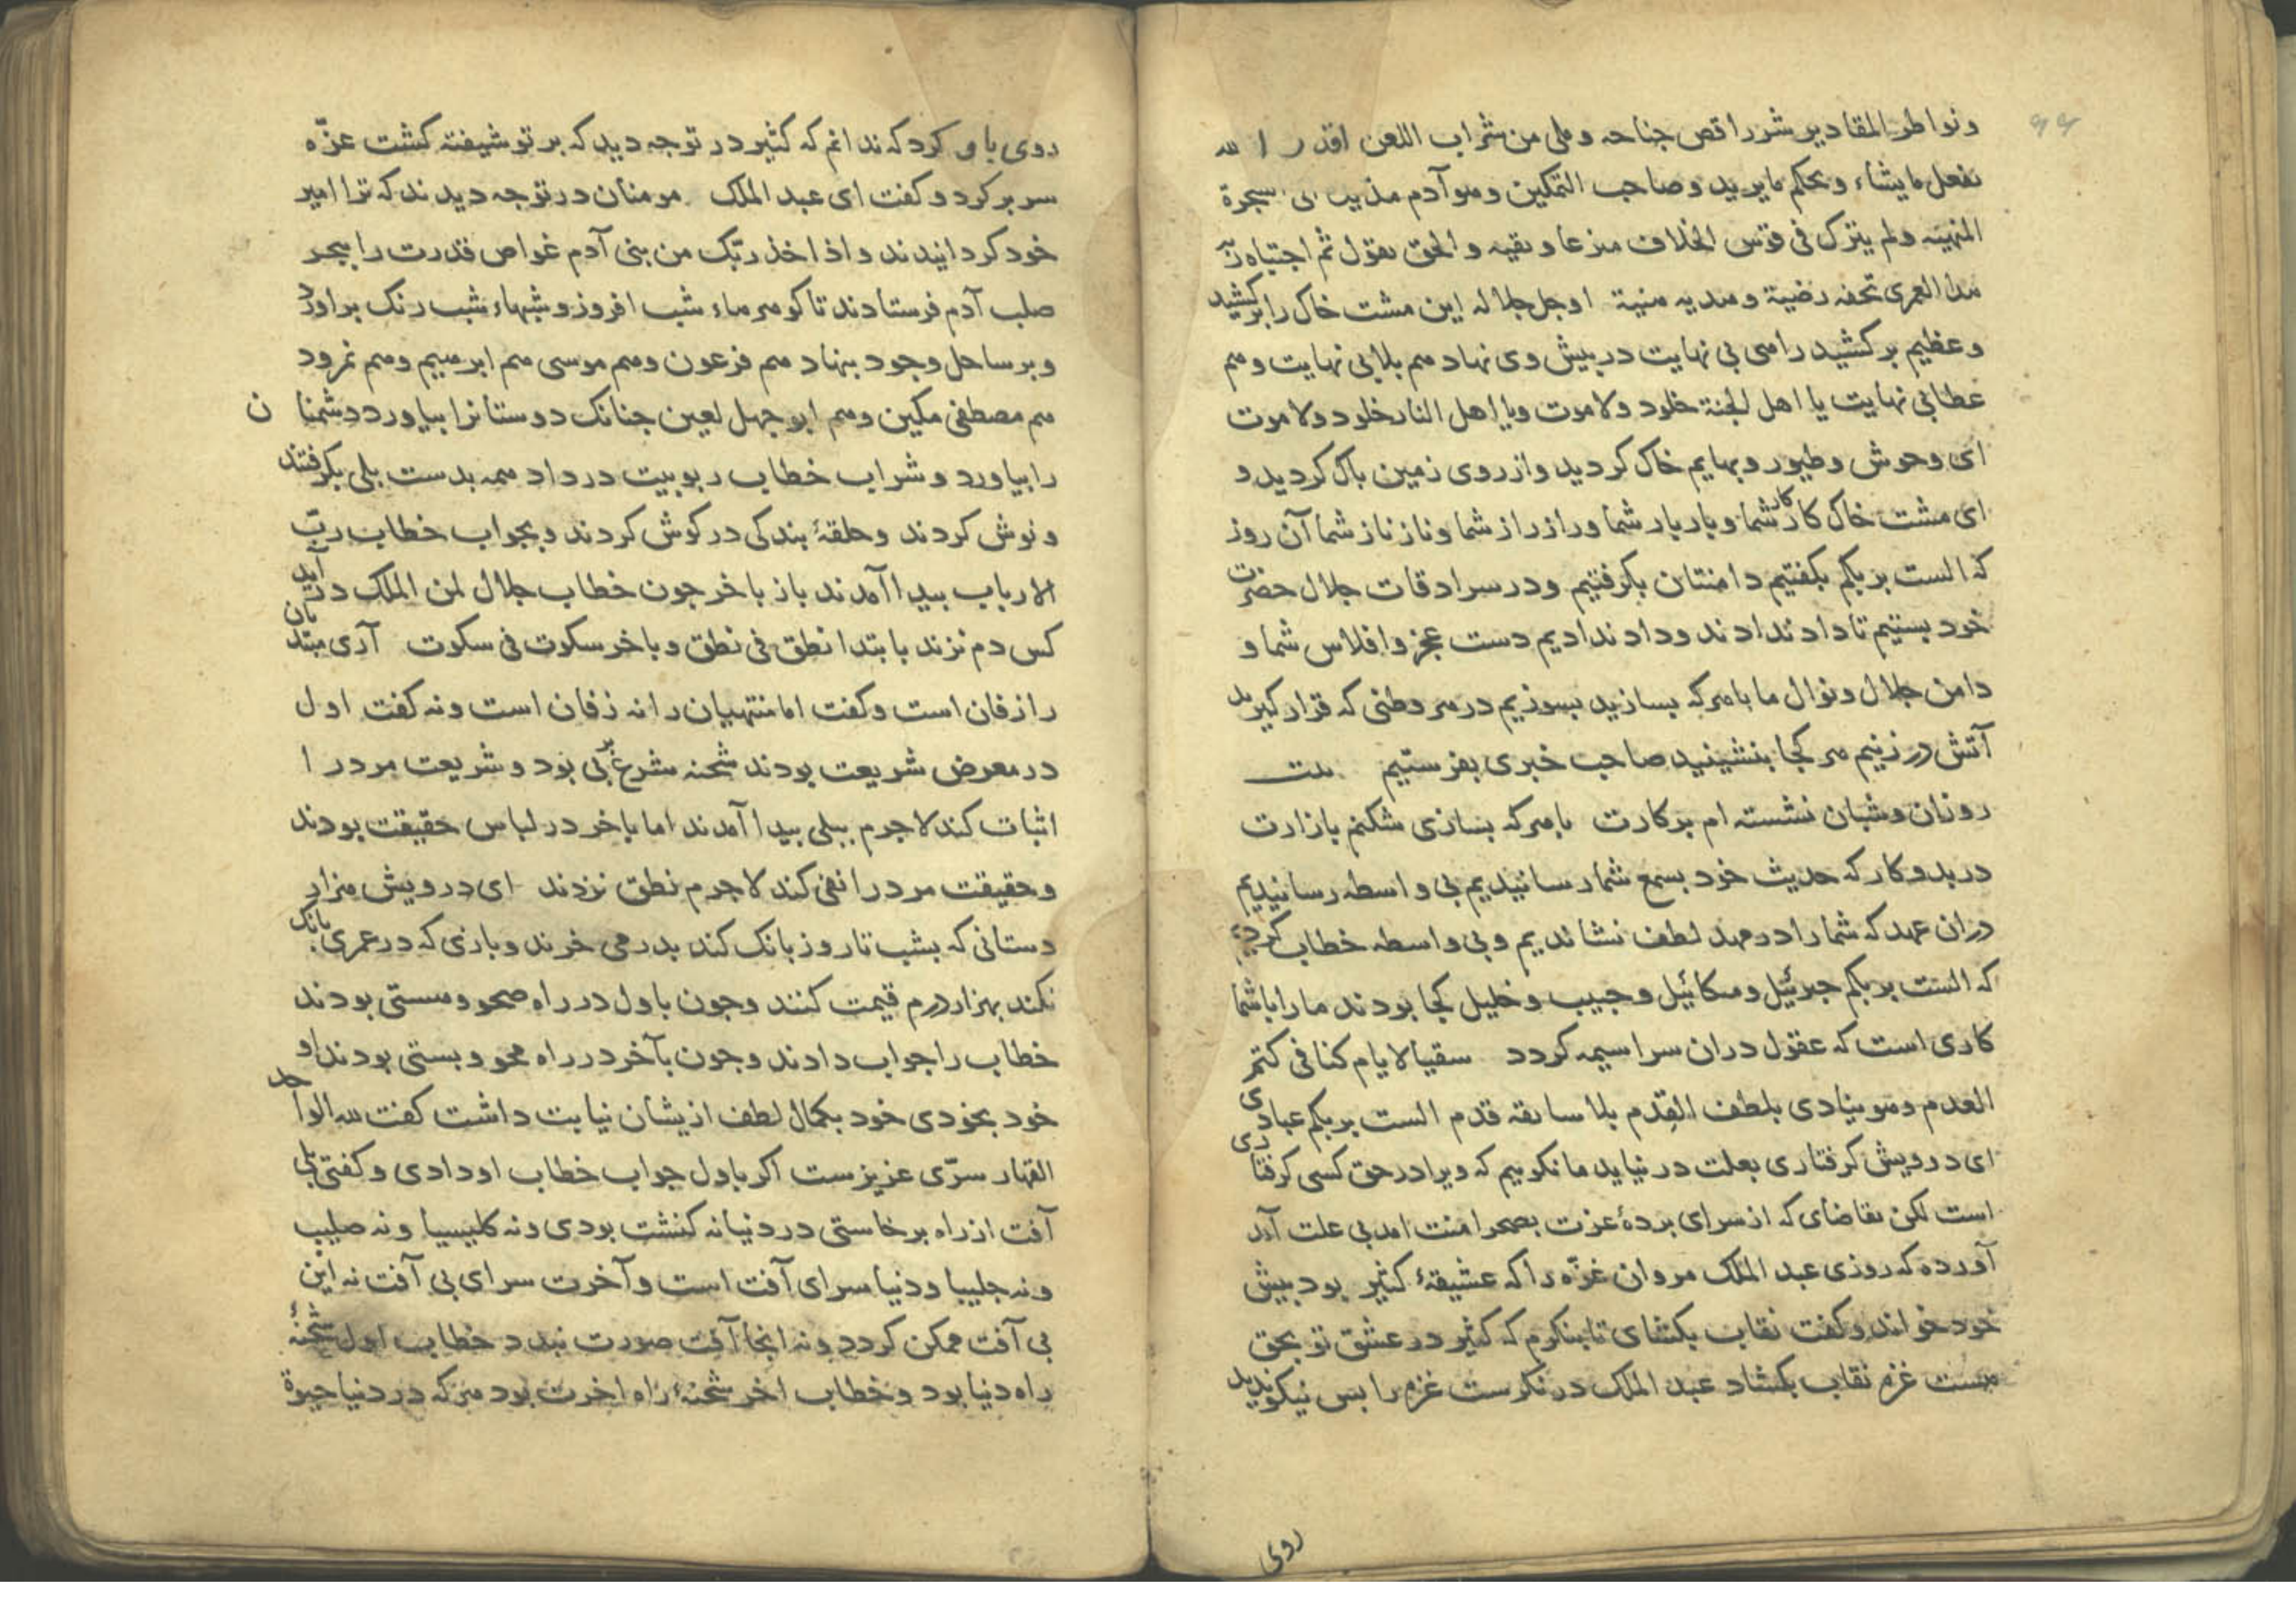 ۹۹
ونواطر المقادیر شررا قص جناحه وملی من شراب اللعن اقدر الله
یفعل ما یشاء ویحکم ما یرید وصاحب التمکین وهو آدم مذیب الشجرة
المنهیه ولم یترک فی قوس الخلاف منزعا وبقیه والحق یقول ثم اجتباه ربه
هذا لعمری تحفه رضیة وهدیه هنیة اوجل جلاله این مشت خاک را برکشید
وعظیم برکشید راهی بی نهایت در پیش وی نهاد هم بلا بی نهایت وهم
عطا بی نهایت یا اهل الجنة خلود ولا موت ویا اهل النار خلود ولا موت
ای وحوش وطیور وبهایم خاک کردید واز روی زمین باک کردید و
ای مشت خاک کار کار شما ویار یار شما وراز راز شما وناز ناز شما آن روز
که الست بربکم بکفتیم دامنتان بکرفتیم ودر سرادقات جلال حضرت
خود بستیم تا داد نداد ند وداد ندادیم دست عجز وافلاس شما و
دامن جلال ونوال ما با هرکه بسازید بسوزیم در هر وطنی که قرار کیرید
آتش در زنیم هر کجا بنشینید صاحب خبری بفرستیم بیت
روزان وشبان نشسته ام بر کارت با هرکه بسازی شکنم بازارت
در بدو کار که حدیث خود بسمع شما رسانیدیم بی واسطه رسانیدیم
دران عهد که شما را در مهد لطف نشاندیم وبی واسطه خطاب کردیم
که الست بربکم جبرئیل ومیکائیل وحبیب وخلیل کجا بودند ما را با شما
کاری است که عقول دران سراسیمه کردد سقیا لایام کنا فی کتم
العدم وهو ینادی بلطف القدم بلا سابقه قدم الست بربکم عبادی
ای درویش کرفتاری بعلت در نیاید ما نکوییم که ویرا در حق کسی کرفتاری
است لکن تقاضای که از سرای بردهٔ عزت بصحرا منت امد بی علت آمد
آورده که روزی عبد الملک مروان عزّه را که عشیقهٔ کثیر بود بیش
خود خواند وکفت نقاب بکشای تا بنکرم که کثیر در عشق تو بحق
هست عزه نقاب بکشاد عبد الملک در نکرست عزه را بس نیکو ندید
روی
روی با و کرد که ندانم که کثیر در تو جه دید که بر تو شیفته کشت عزّه
سر بر کرد وکفت ای عبد الملک مومنان در تو جه دیدند که ترا امیر
خود کردانیدند واذ اخذ ربّک من بنی آدم غواص قدرت را ببحر
صلب آدم فرستادند تا کوهرهاء شب افروز وشبهاء شب رنک براورد
وبر ساحل وجود بنهاد هم فرعون وهم موسی هم ابرهیم وهم نمرود
هم مصطفی مکین وهم ابو جهل لعین جنانک دوستانرا بیاورد دشمنان
را بیاورد وشراب خطاب ربوبیت در داد همه بدست بلی بکرفتند
ونوش کردند وحلقهٔ بندکی در کوش کردند وبجواب خطاب ربّ
الارباب بیدا آمدند باز باخر جون خطاب جلال لمن الملک در آید
کس دم نزند بابتدا نطق فی نطق وباخر سکوت فی سکوت آری مبتدیان
را زفان است وکفت اما منتهیان را نه زفان است ونه کفت اول
در معرض شریعت بودند شحنه شرع بر بی بود وشریعت مرد را
اثبات کند لاجرم ببلی بیدا آمدند اما باخر در لباس حقیقت بودند
وحقیقت مرد را نفی کند لاجرم نطق نزدند ای درویش هزار
دستانی که بشب تا روز بانک کند بدرمی خرند وبازی که در عمری بانک
نکند بهزار درم قیمت کنند وجون باول در راه صحو وهستی بودند
خطاب را جواب دادند وجون بآخر در راه محو وبستی بودند او
خود بخودی خود بکمال لطف ازیشان نیابت داشت کفت لله الواحد
القهار سرّی عزیزست اکر باول جواب خطاب او دادی وکفتی بلی
آفت از راه برخاستی در دنیا نه کنشت بودی ونه کلیسیا ونه صلیب
ونه جلیبا ودنیا سرای آفت است وآخرت سرای بی آفت نه این
بی آفت ممکن کردد ونه انجا آفت صورت بندد خطاب اول شحنهٔ
راه دنیا بود وخطاب اخر شحنهٔ راه اخرت بود هرکه در دنیا حیوة